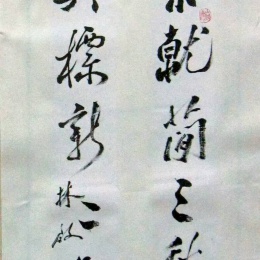 就簡三秋
標新二
林